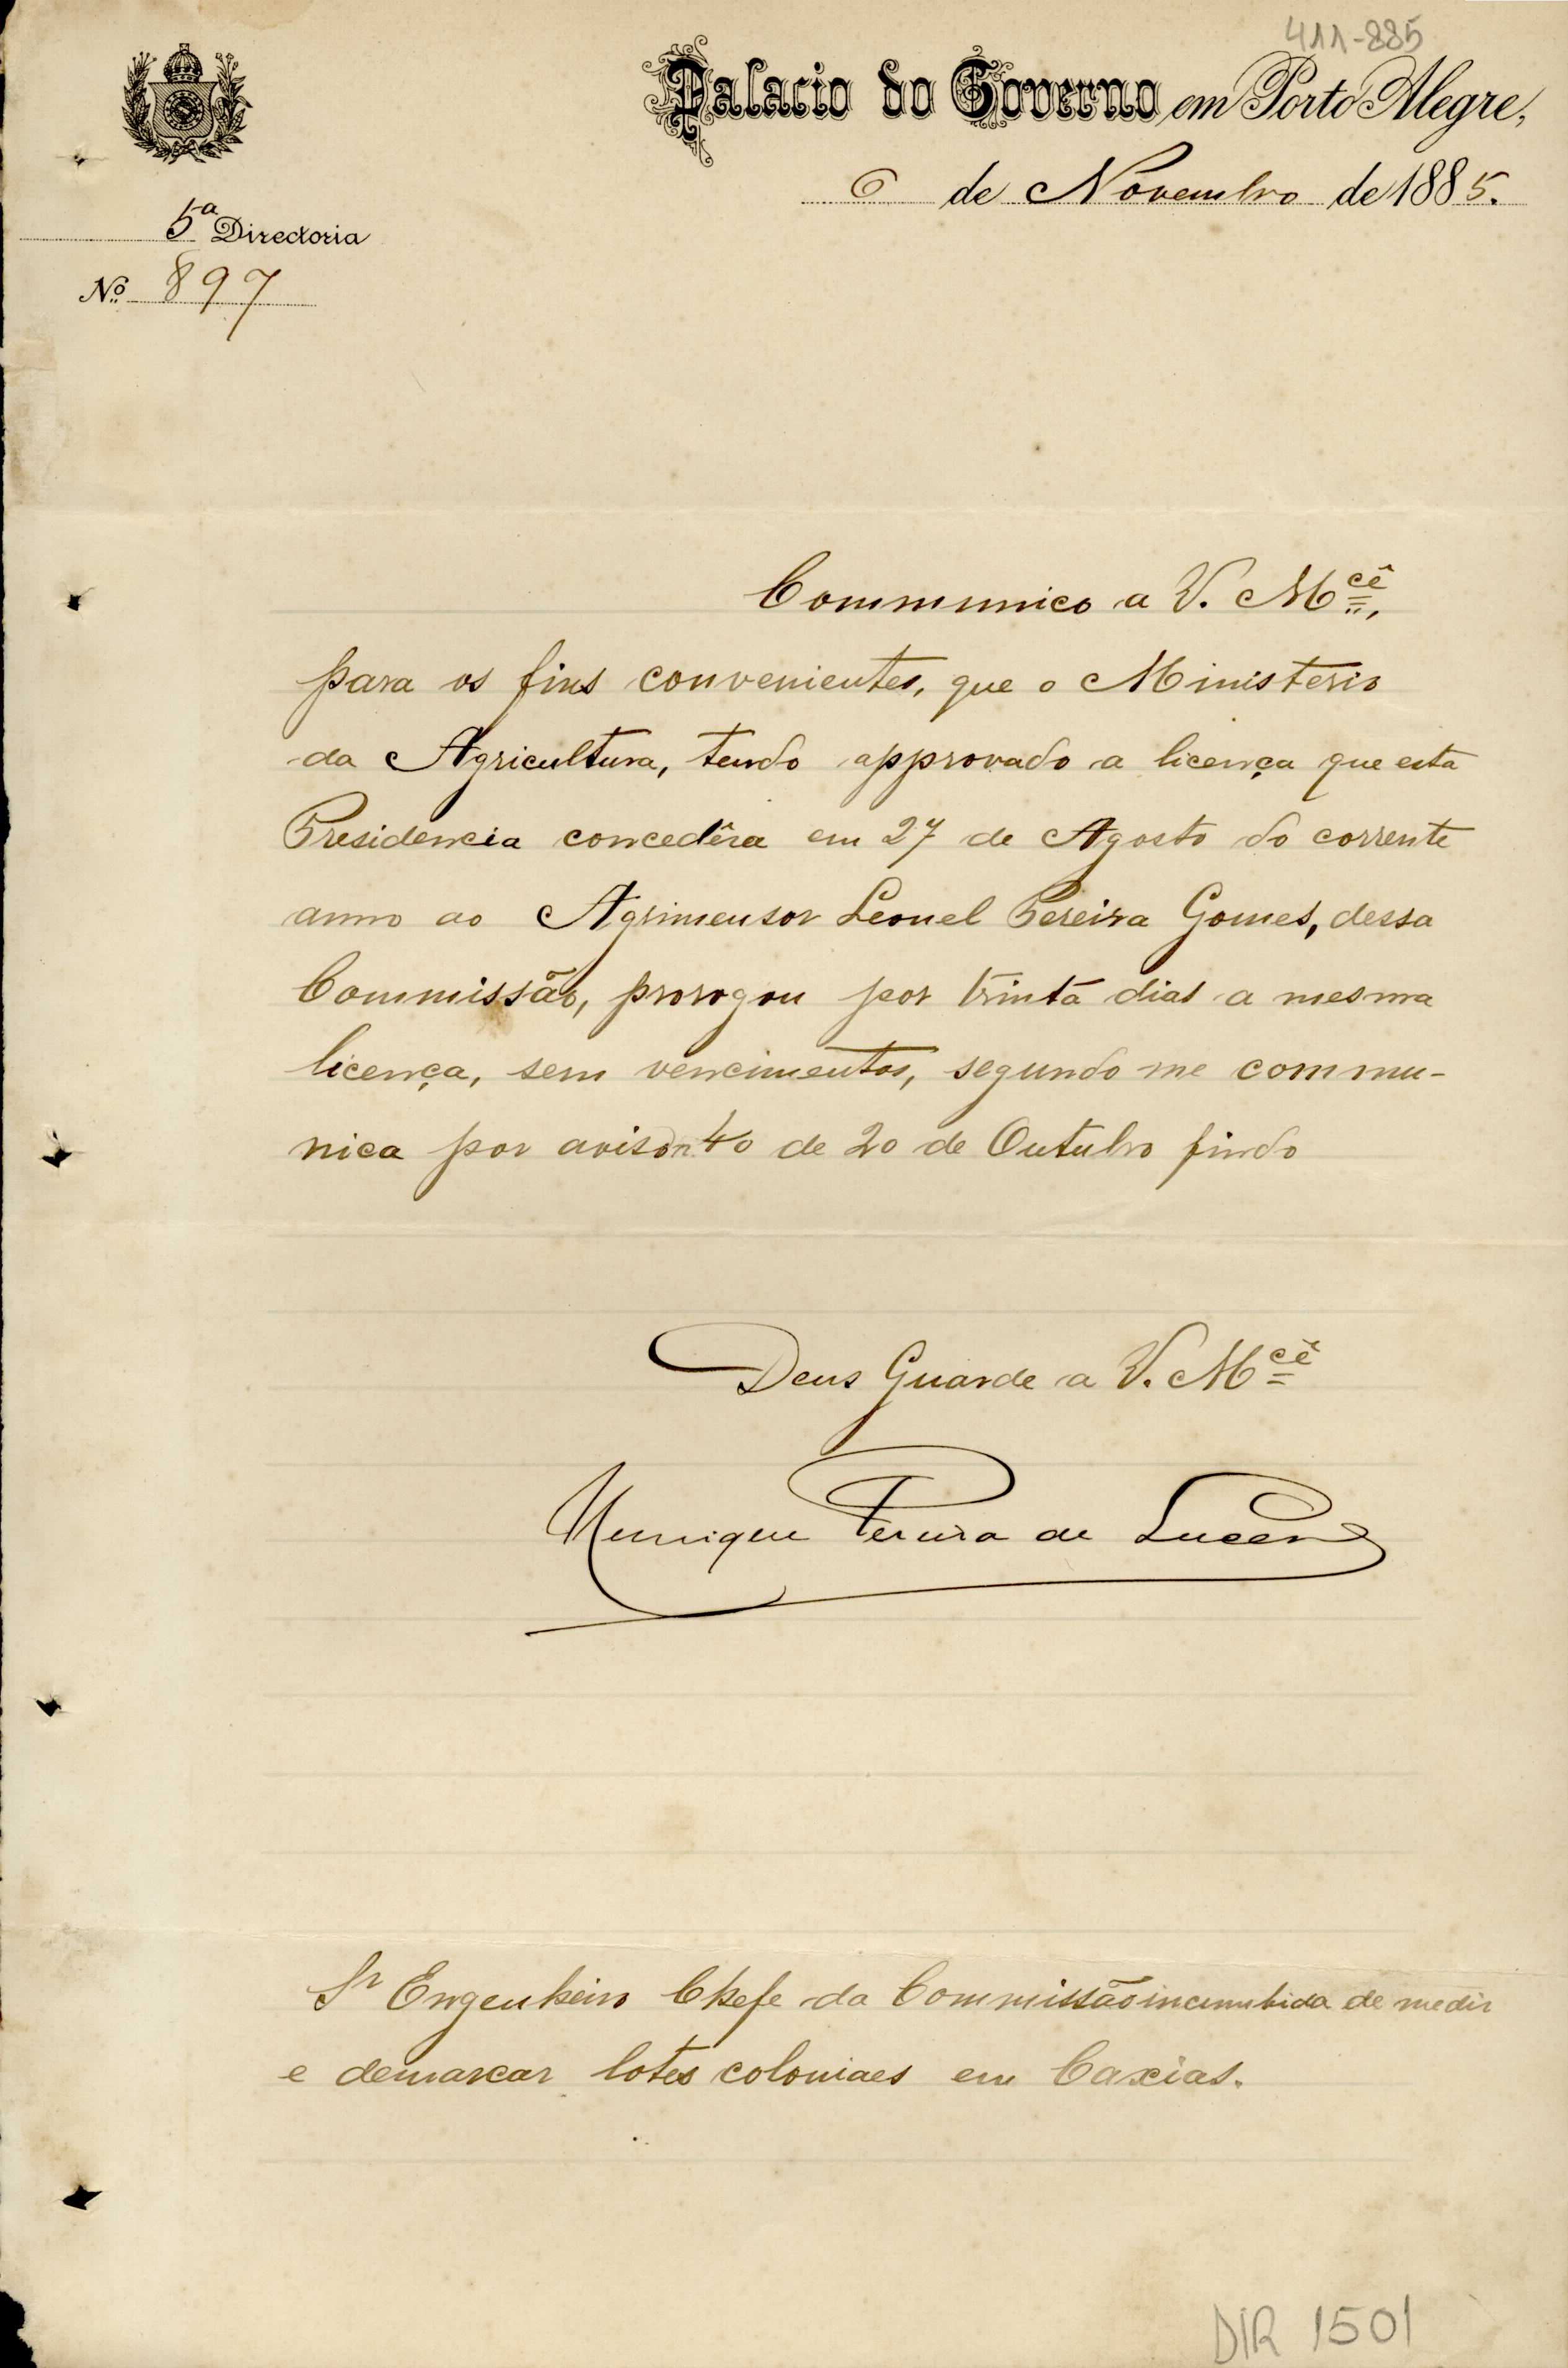 411-885
Palacio do Governo em Porto Alegre,
6 de Novembro de 1885.
5ª Directoria
Nº 897
Communico a V. Mcê,
para os fins convenientes, que o Ministerio
da Agricultura, tendo approvado a licença que esta
Presidencia concedêra em 27 de Agosto do corrente
anno ao Agrimensor Leonel Pereira Gomes, dessa
Commissão, prorogou por trinta dias a mesma
licença, sem vencimentos, segundo me commu-
nica por aviso n. 40 de 20 de Outubro findo
Deus Guarde a V. Mcê
Henrique Pereira de Lucena
Sr Engenheiro Chefe da Commissão incumbida de medir
e demarcar lotes coloniaes em Caxias.
DIR 1501